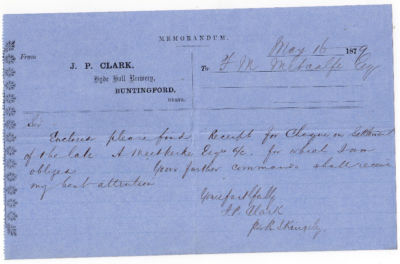 MEMORANDUM.
May 16 1879
From
J. P. CLARK,
To F. M. Metcalfe Esq
Hyde Hall Brewery,
BUNTINGFORD,
HERTS.
Sir
Enclosed please find Receipt for Cheque in Settlement
of the late A Meetkerke Esqrs a/c. for which I am
obliged Your further commands shall receive
my best attention
Yours faithfully
J. P. Clark
per